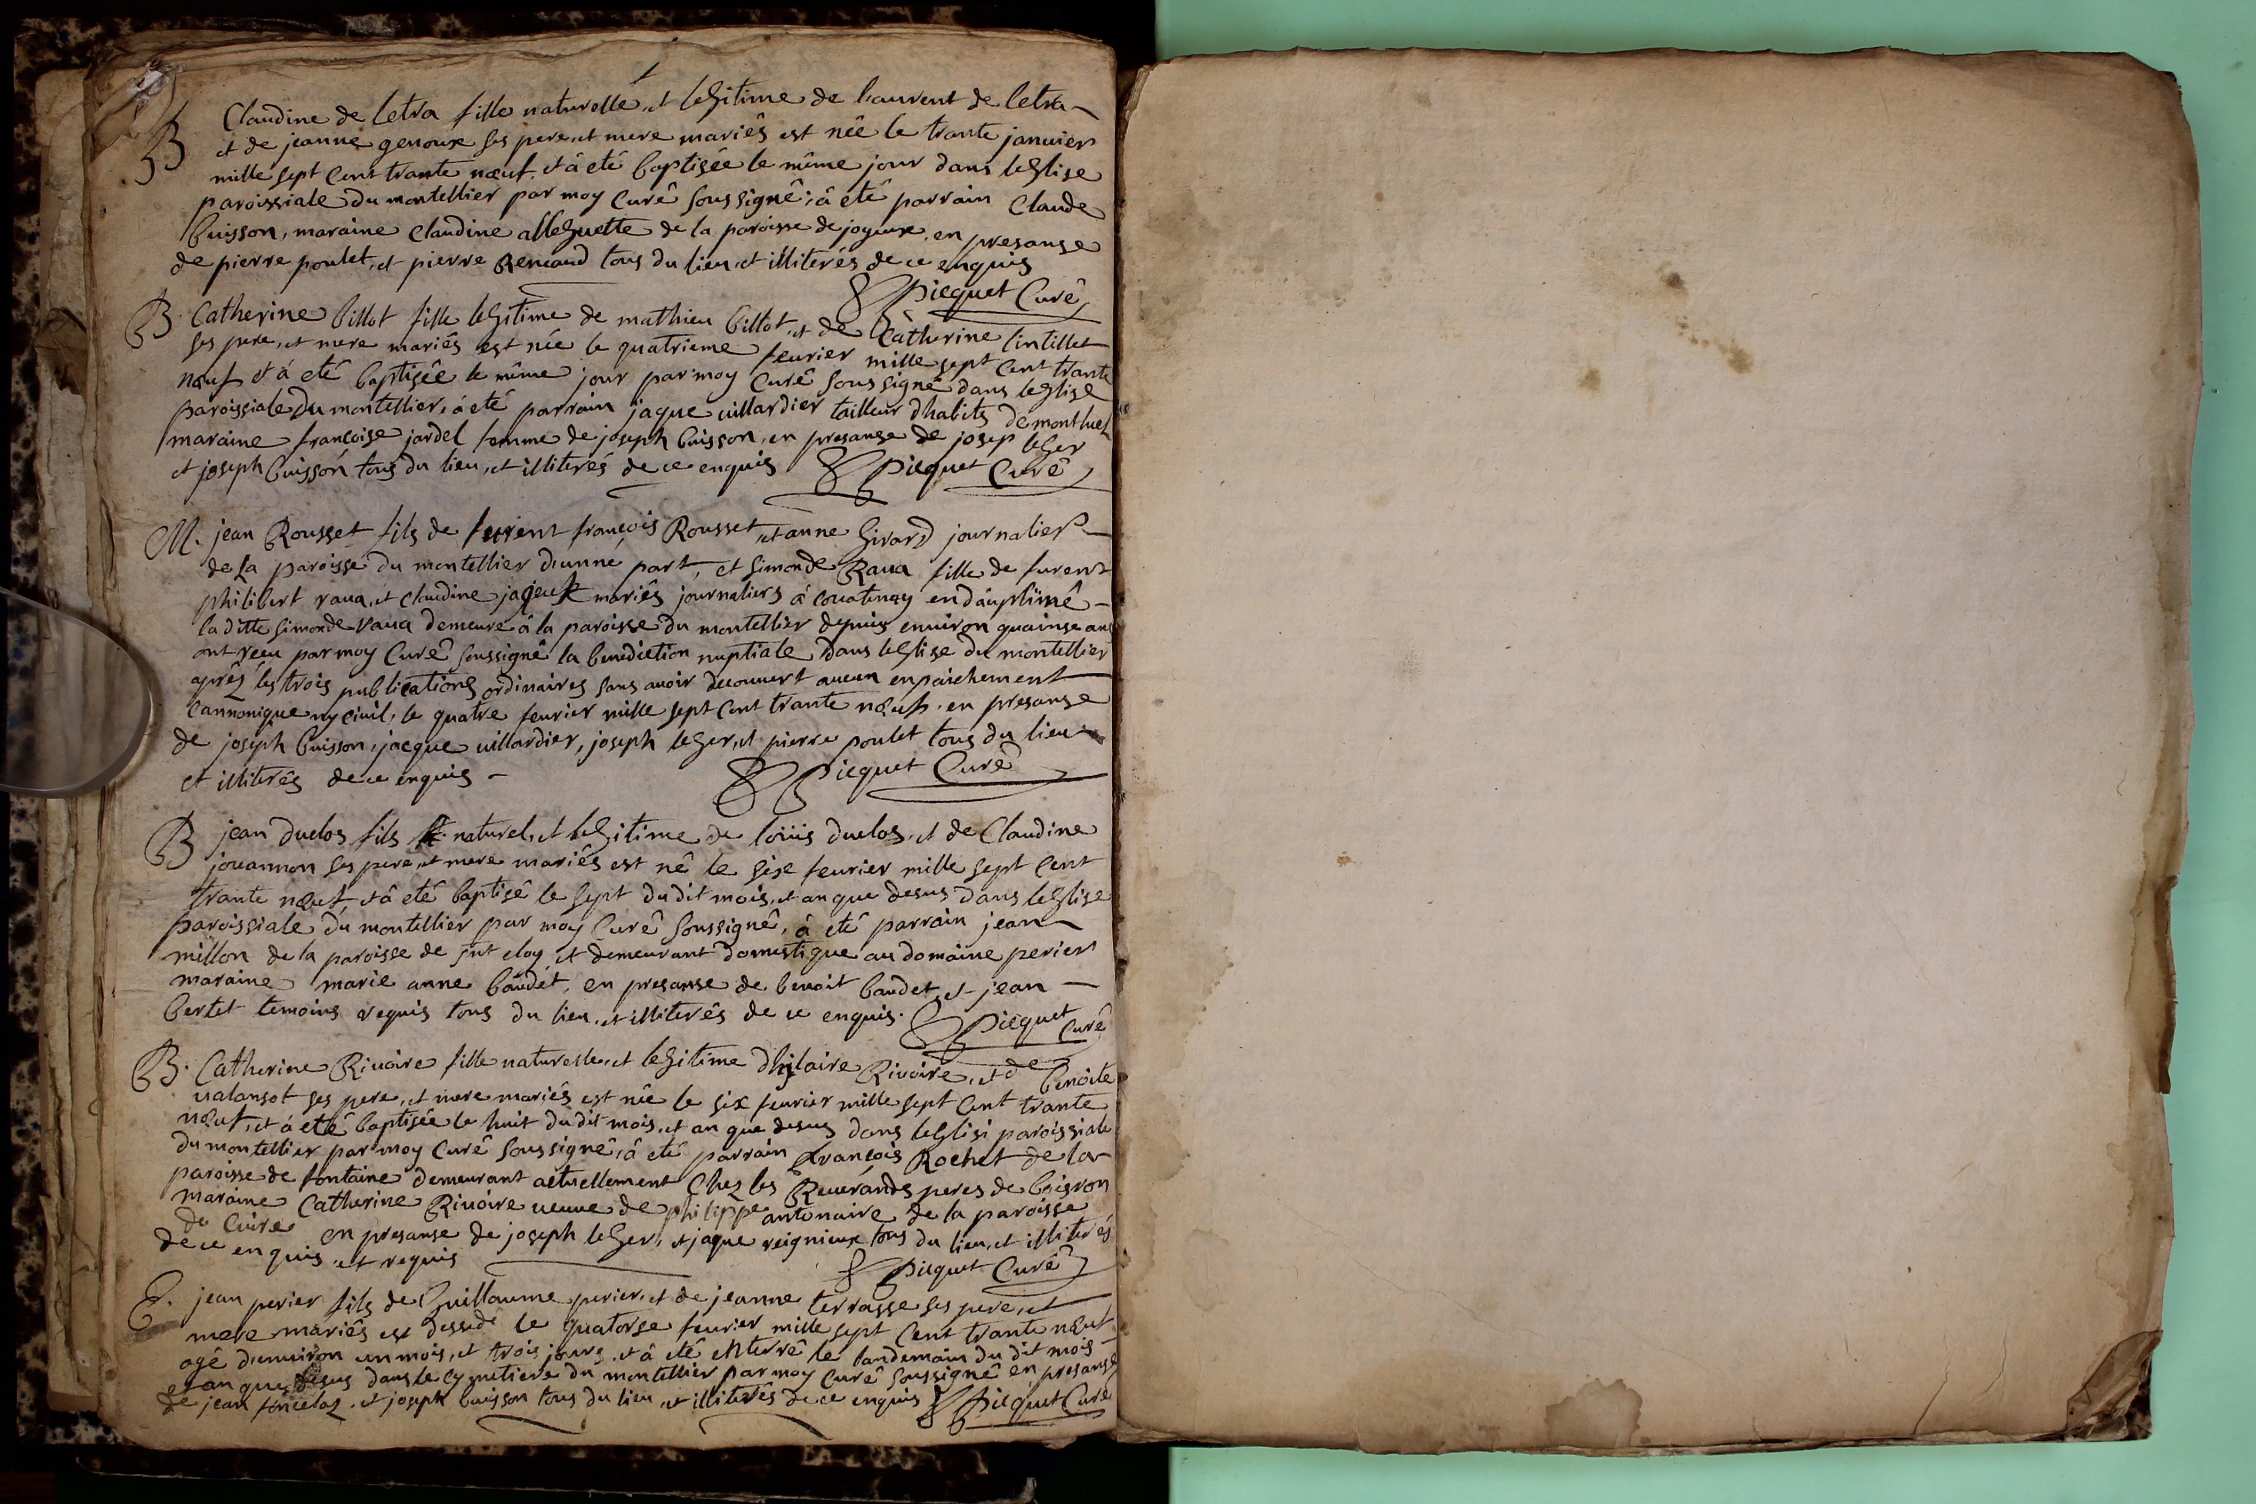 B Claudine de letra fille naturelle, et lesgitime de laurent de letra
et de jeanne genoux ses pere, et mere mariés est née le trante januier
mille sept cent trante nœuf, et â eté baptisée le même jour dans leglise
paroissiale du montellier par moy curé soussigné; â eté parrain claude
buisson, maraine claudine alleguette de la paroisse de joyeux, en presanse
de pierre poulet, et pierre Renaud tous du lieu, et illiterés de ce enquis
Picquet Curé
B. Catherine billot fille legitime de mathieu billot, et de Catherine lintillet
ses pere, et mere mariés est née le quatrieme feurier mille sept cent trante
nœuf et â eté baptisée le même jour par moy Curé soussigné dans leglise
paroissiale du montellier, â eté parrain jaque uillardier tailleur dhabits de montluel
maraine françoise jardel femme de joseph buisson, en presanse de josep leger
et joseph buisson tous du lieu, et illiterés de ce enquis Picquet Curé
M. jean Rousset fils de furent françois Rousset, et anne Girard journalier
de la paroisse du montellier d'unne part, et simonde Raua fille de furent
philibert raua, et claudine jajeux mariés journaliers â couatenay en dauphiné
la ditte simonde raua demeure â la paroisse du montellier depuis enuiron quainse ans
ont reçu par moy Curé soussigné la benediction nuptiale dans leglise du montellier
aprés les trois publications ordinaires sans auoir decouuert aucun enpaichement
cannonique ny ciuil, le quatre feurier mille sept cent trante nœuf, en presanse
de joseph buisson, jacque uillardier, joseph leger, et pierre poulet tous du lieu
et illiterés de ce enquis Picquet Curé
B jean duclos fils naturel, et legitime de loüis duclos, et de Claudine
jouannon ses pere, et mere mariés est né le six feurier mille sept cent
trante nœuf, et â eté baptisé le sept du dit mois, et an que desus dans leglise
paroissiale du montellier par moy Curé soussigné, â eté parrain jean
millon de la paroisse de snt eloy, et demeurant domestique au domaine perier
maraine marie anne baudet, en presanse de benoit baudet, et jean
bertet temoins requis tous du lieu, et illiterés de ce enquis. Picquet Curé
B. Catherine Riuoire fille naturelle, et legitime dhilaire Riuoire, et de benoite
ualansot ses pere, et mere mariés est née le six feurier mille sept cent trante
nœuf, et â eté baptisée le huit du dit mois, et an que desus dans leglisi paroissiale
du montellier par moy Curé soussigné, â eté parrain françois Rochet de la
paroisse de fontaine demeurant actuellement Chez les Reuerands peres de
maraine Catherine Riuoire ueuue de philippe antonaire de la paroisse
de Cuire en presanse de joseph leger, et jaque reignieux tous du lieu, et illiterés
de ce enquis, et requis Picquet Curé
E. jean perier fils de Guillaume perier, et de jeanne terrasse ses pere, et
mere mariés est dessedé le quatorse feurier mille sept cent trante nœuf
agé d'enuiron un mois, et trois jours, et â eté enterré le landemain du dit mois
et an que desus dans le cymetiere du montellier par moy Curé soussigné en presanse
de jean , et joseph buisson tous du lieu, et illiterés de ce enquis Picquet Curé